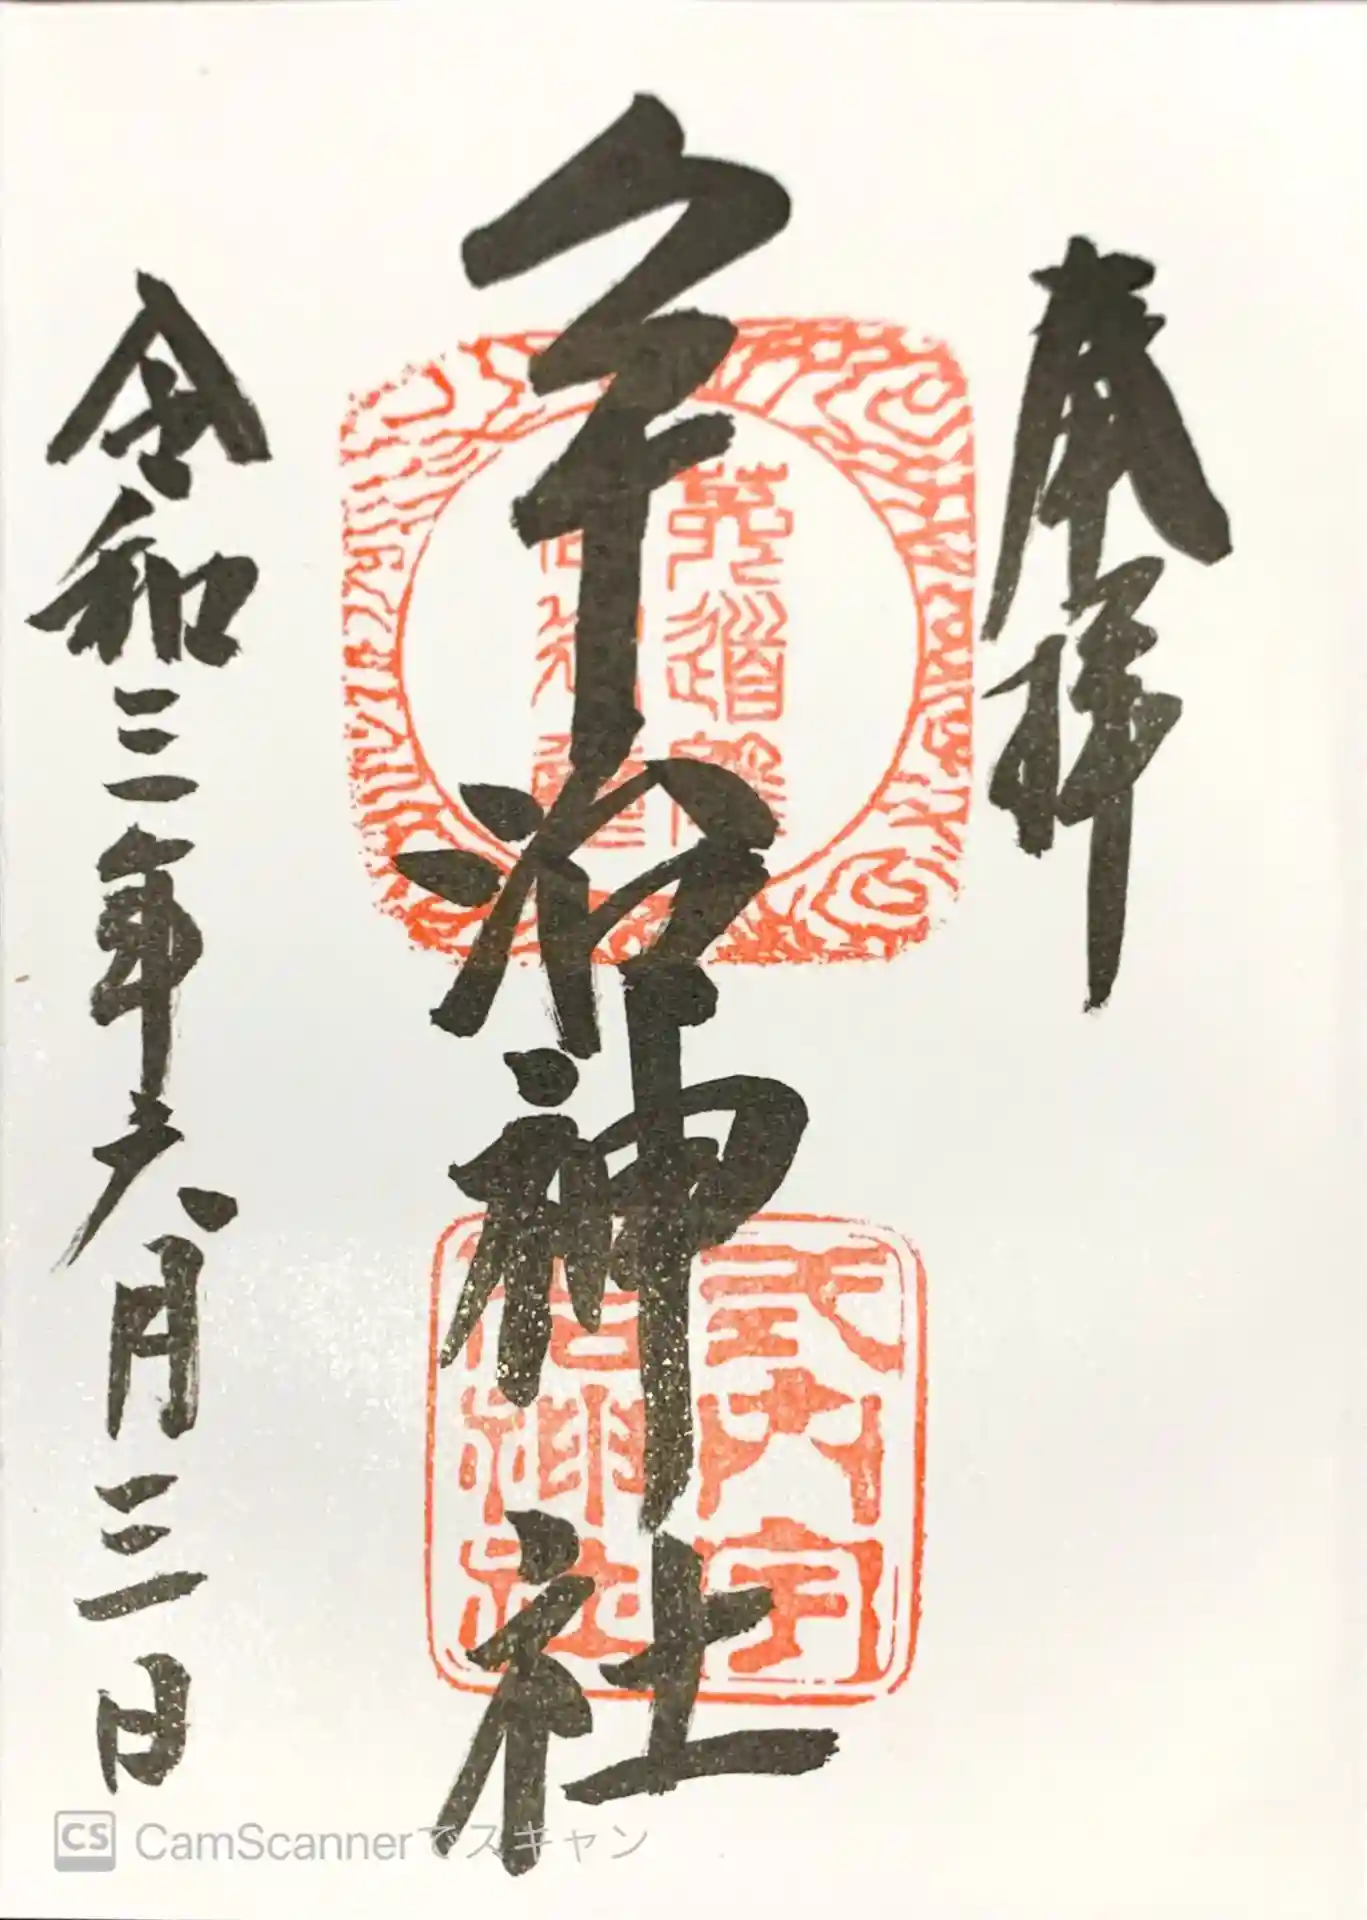 奉拝
宇治神社
式内宇
治神社
令和三年六月三日
CS CamScannerでスキャン